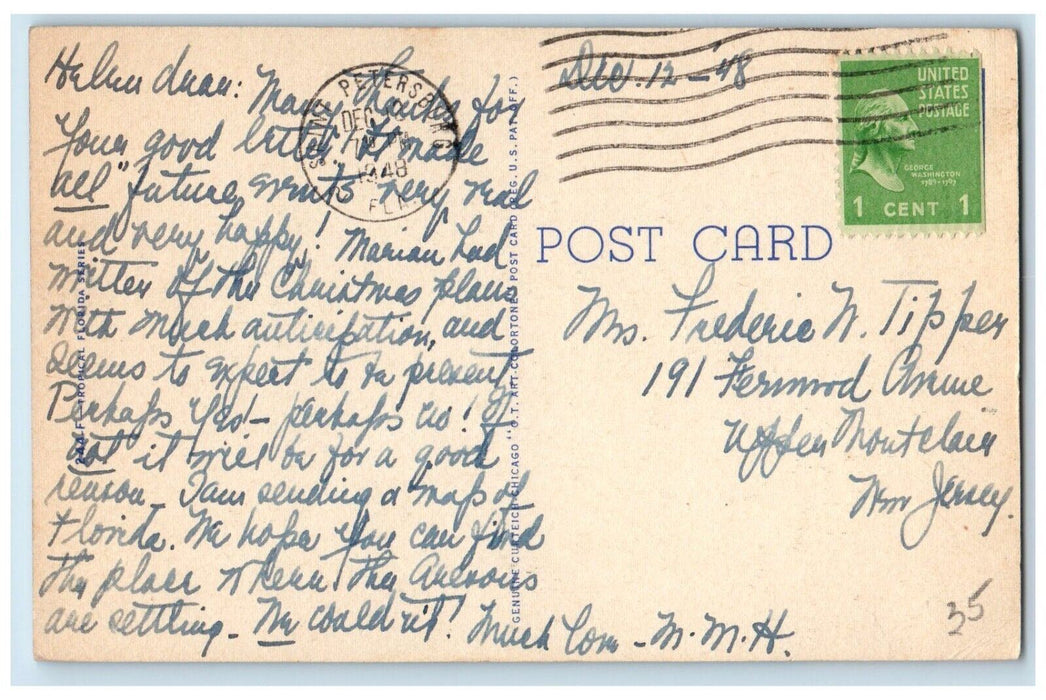 Helen dear: Many thanks for
your good letter. "It made
all" future events very real
and very happy! Marian had
written of the Christmas plans
with much anticipation, and
seems to expect to be present
Perhaps yes! - perhaps no! If
not it will be for a good
reason - I am sending a map of
Florida. We hope you can find
the place where the
are settling - We couldn't! Much Love - M.M.H.
Dec. 12 - '48
SAINT PETERSBURG
DEC
1948
FLA.
UNITED
STATES
POSTAGE
GEORGE
WASHINGTON
1789-1797
1 CENT 1
POST CARD
Mrs. Frederic W. Tipper
191 Fernwood Avenue
Upper Montclair
New Jersey.
35
244 F-TROPICAL FLORIDA SERIES
GENUINE CURTEICH-CHICAGO "C.T. ART-COLORTONE" POST CARD (REG. U.S. PAT. OFF.)